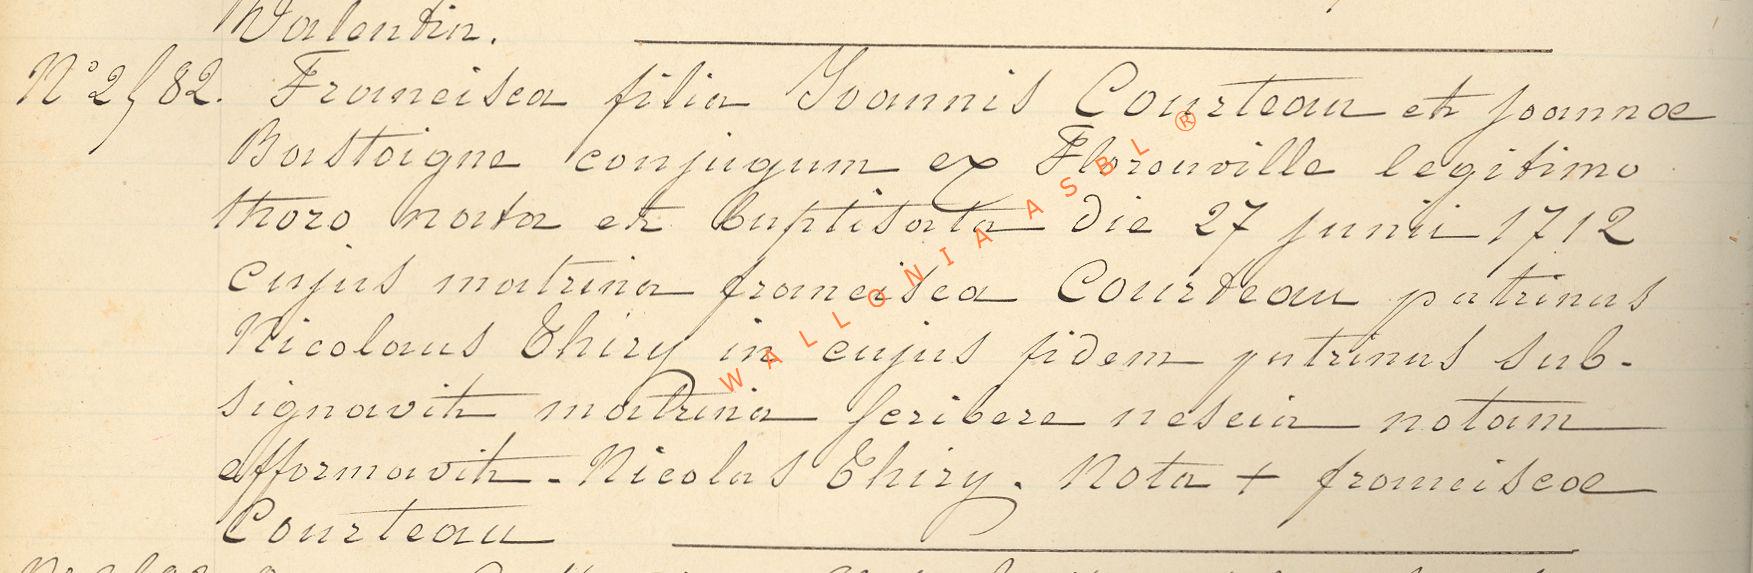 Valentin.
N° 2/82. Francisca filia Joannis Courteau et joannæ
Bastoigne conjugum ex Florenville legitimo
thoro nata et baptisata die 27 junii 1712
cujus matrina francisca Courteau patrinus
Nicolaus Thiry in cujus fidem patrinus sub-
signavit matrina scribere nescia notam
efformavit - Nicolas Thiry. Nota + franciscæ
Courteau
WALLONIA ASBL ®